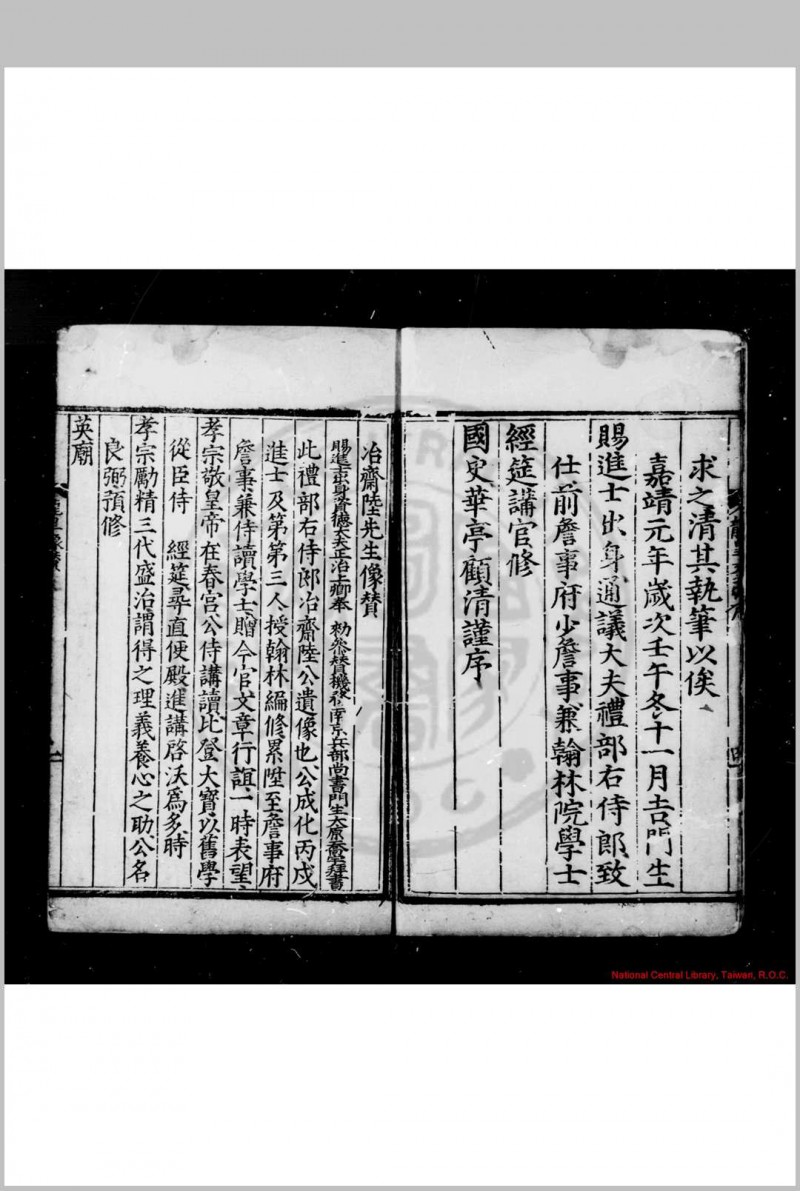 求之清其執筆以俟
嘉靖元年歲次壬午冬十一月吉門生
賜進士出身通議大夫禮部右侍郎致
仕前詹事府少詹事兼翰林院學士
經筵講官修
國史華亭顧清謹序
冶齋陸先生像贊
賜進士出身資德大夫正治上卿奉 勑參贊機務南京兵部尚書門生太原喬宇拜書
此禮部右侍郎冶齋陸公遺像也公成化丙戌
進士及第第三人授翰林編修累陞至詹事府
詹事兼侍讀學士贈今官文章行誼一時表望
孝宗敬皇帝在春宮公侍講讀比登大寶以舊學
從臣侍 經筵尋直便殿進講啓沃爲多時
孝宗勵精三代盛治謂得之理義養心之助公名
良弼預修
英廟
National Central Library, Taiwan, R.O.C.